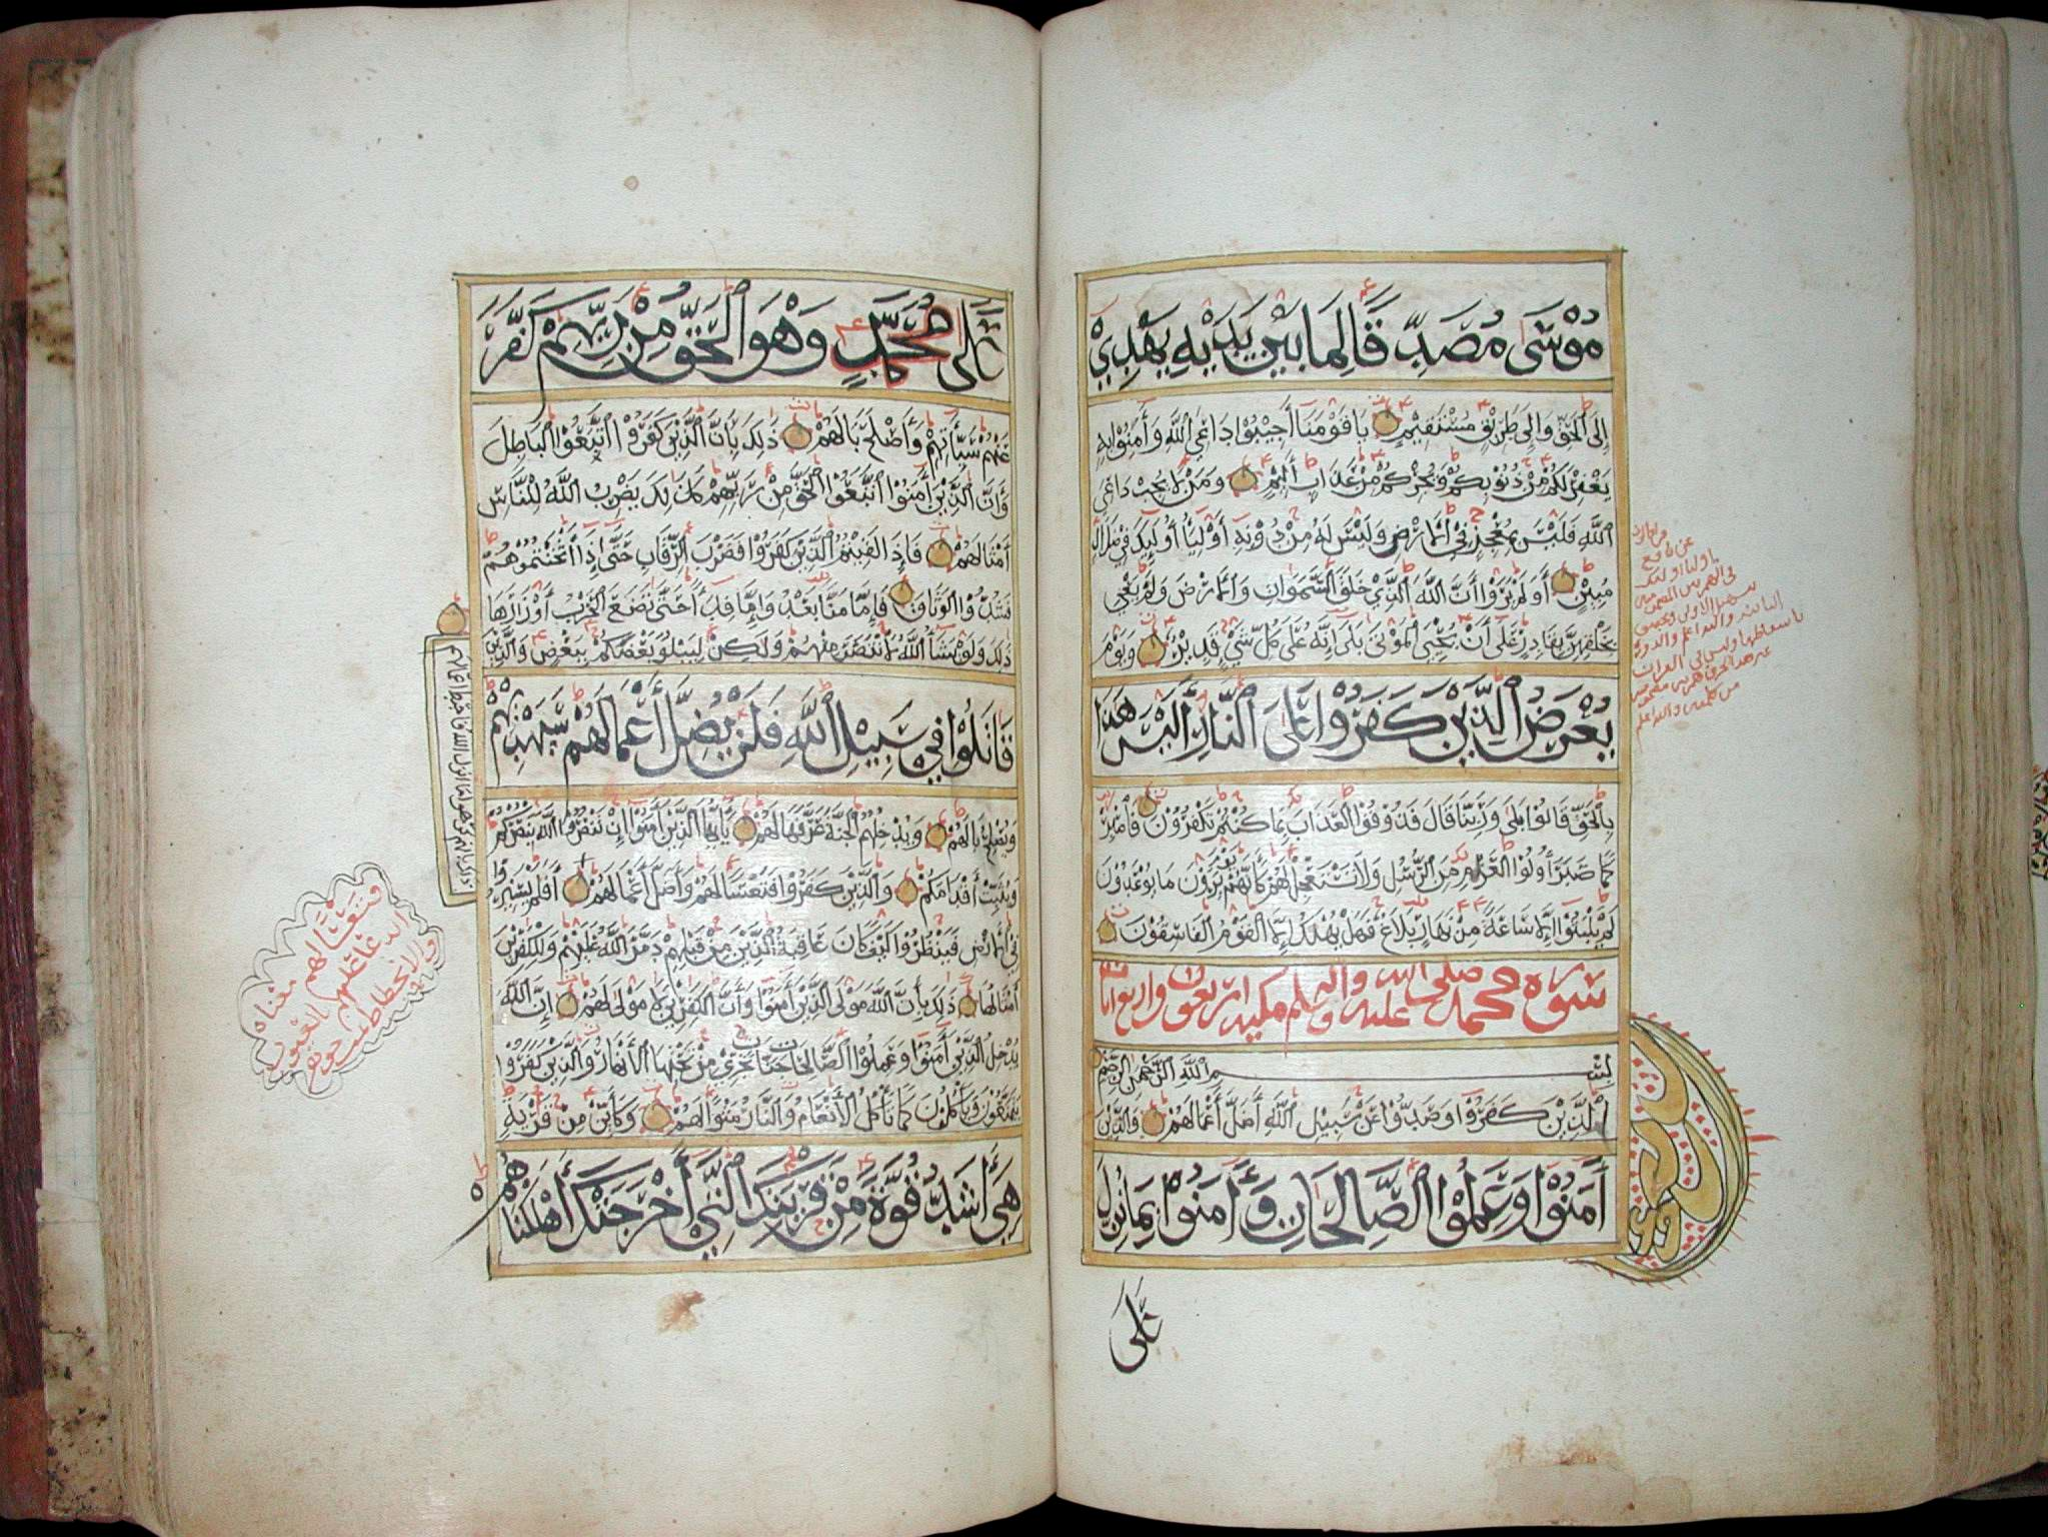 مُوْسَى مُصَدِّقًا لِمَا بَيْنَ يَدَيْهِ يَهْدِيْ
إِلَى الْحَقِّ وَإِلَى طَرِيْقٍ مُسْتَقِيْمٍ يَا قَوْمَنَا أَجِيْبُوْا دَاعِيَ اللَّهِ وَآمِنُوْا بِهِ
يَغْفِرْ لَكُمْ مِنْ ذُنُوْبِكُمْ وَيُجِرْكُمْ مِنْ عَذَابٍ أَلِيْمٍ وَمَنْ لَا يُجِبْ دَاعِيَ
اللَّهِ فَلَيْسَ بِمُعْجِزٍ فِي الْأَرْضِ وَلَيْسَ لَهُ مِنْ دُوْنِهِ أَوْلِيَاءُ أُولَئِكَ فِي ضَلَالٍ
مُبِيْنٍ أَوَلَمْ يَرَوْا أَنَّ اللَّهَ الَّذِيْ خَلَقَ السَّمَوَاتِ وَالْأَرْضَ وَلَمْ يَعْيَ
بِخَلْقِهِنَّ بِقَادِرٍ عَلَى أَنْ يُحْيِيَ الْمَوْتَى بَلَى إِنَّهُ عَلَى كُلِّ شَيْءٍ قَدِيْرٌ وَيَوْمَ
يُعْرَضُ الَّذِيْنَ كَفَرُوْا عَلَى النَّارِ أَلَيْسَ هَذَا
بِالْحَقِّ قَالُوْا بَلَى وَرَبِّنَا قَالَ فَذُوْقُوْا الْعَذَابَ بِمَا كُنْتُمْ تَكْفُرُوْنَ فَاصْبِرْ
كَمَا صَبَرَ أُولُوْا الْعَزْمِ مِنَ الرُّسُلِ وَلَا تَسْتَعْجِلْ لَهُمْ كَأَنَّهُمْ يَوْمَ يَرَوْنَ مَا يُوْعَدُوْنَ
لَمْ يَلْبَثُوْا إِلَّا سَاعَةً مِنْ نَهَارٍ بَلَاغٌ فَهَلْ يُهْلَكُ إِلَّا الْقَوْمُ الْفَاسِقُوْنَ
سورة محمد صلى الله عليه وآله وسلم مكية اربعون واربع ايات
بِسْمِ اللَّهِ الرَّحْمَنِ الرَّحِيْمِ
الَّذِيْنَ كَفَرُوْا وَصَدُّوْا عَنْ سَبِيْلِ اللَّهِ أَضَلَّ أَعْمَالَهُمْ وَالَّذِيْنَ
آمَنُوْا وَعَمِلُوْا الصَّالِحَاتِ وَآمَنُوْا بِمَا نُزِّلَ
عَلَى
عَلَى مُحَمَّدٍ وَهْوَ الْحَقُّ مِنْ رَبِّهِمْ كَفَّرَ
عَنْهُمْ سَيِّئَاتِهِمْ وَأَصْلَحَ بَالَهُمْ ذَلِكَ بِأَنَّ الَّذِيْنَ كَفَرُوْا اتَّبَعُوْا الْبَاطِلَ
وَأَنَّ الَّذِيْنَ آمَنُوْا اتَّبَعُوْا الْحَقَّ مِنْ رَبِّهِمْ كَذَلِكَ يَضْرِبُ اللَّهُ لِلنَّاسِ
أَمْثَالَهُمْ فَإِذَا لَقِيْتُمُ الَّذِيْنَ كَفَرُوْا فَضَرْبَ الرِّقَابِ حَتَّى إِذَا أَثْخَنْتُمُوْهُمْ
فَشُدُّوْا الْوَثَاقَ فَإِمَّا مَنًّا بَعْدُ وَإِمَّا فِدَاءً حَتَّى تَضَعَ الْحَرْبُ أَوْزَارَهَا
ذَلِكَ وَلَوْ يَشَاءُ اللَّهُ لَانْتَصَرَ مِنْهُمْ وَلَكِنْ لِيَبْلُوَ بَعْضَكُمْ بِبَعْضٍ وَالَّذِيْنَ
قَاتَلُوْا فِي سَبِيْلِ اللَّهِ فَلَنْ يُضِلَّ أَعْمَالَهُمْ سَيَهْدِيْهِمْ
وَيُصْلِحُ بَالَهُمْ وَيُدْخِلُهُمُ الْجَنَّةَ عَرَّفَهَا لَهُمْ يَا أَيُّهَا الَّذِيْنَ آمَنُوْا إِنْ تَنْصُرُوْا اللَّهَ يَنْصُرْكُمْ
وَيُثَبِّتْ أَقْدَامَكُمْ وَالَّذِيْنَ كَفَرُوْا فَتَعْسًا لَهُمْ وَأَضَلَّ أَعْمَالَهُمْ أَفَلَمْ يَسِيْرُوْا
فِي الْأَرْضِ فَيَنْظُرُوْا كَيْفَ كَانَ عَاقِبَةُ الَّذِيْنَ مِنْ قَبْلِهِمْ دَمَّرَ اللَّهُ عَلَيْهِمْ وَلِلْكَافِرِيْنَ
أَمْثَالُهَا ذَلِكَ بِأَنَّ اللَّهَ مَوْلَى الَّذِيْنَ آمَنُوْا وَأَنَّ الْكَافِرِيْنَ لَا مَوْلَى لَهُمْ إِنَّ اللَّهَ
يُدْخِلُ الَّذِيْنَ آمَنُوْا وَعَمِلُوْا الصَّالِحَاتِ جَنَّاتٍ تَجْرِيْ مِنْ تَحْتِهَا الْأَنْهَارُ وَالَّذِيْنَ كَفَرُوْا
يَتَمَتَّعُوْنَ وَيَأْكُلُوْنَ كَمَا تَأْكُلُ الْأَنْعَامُ وَالنَّارُ مَثْوًى لَهُمْ وَكَأَيِّنْ مِنْ قَرْيَةٍ
هِيَ أَشَدُّ قُوَّةً مِنْ قَرْيَتِكَ الَّتِيْ أَخْرَجَتْكَ أَهْلَكْنَاهُمْ
فتعسا لهم معناه